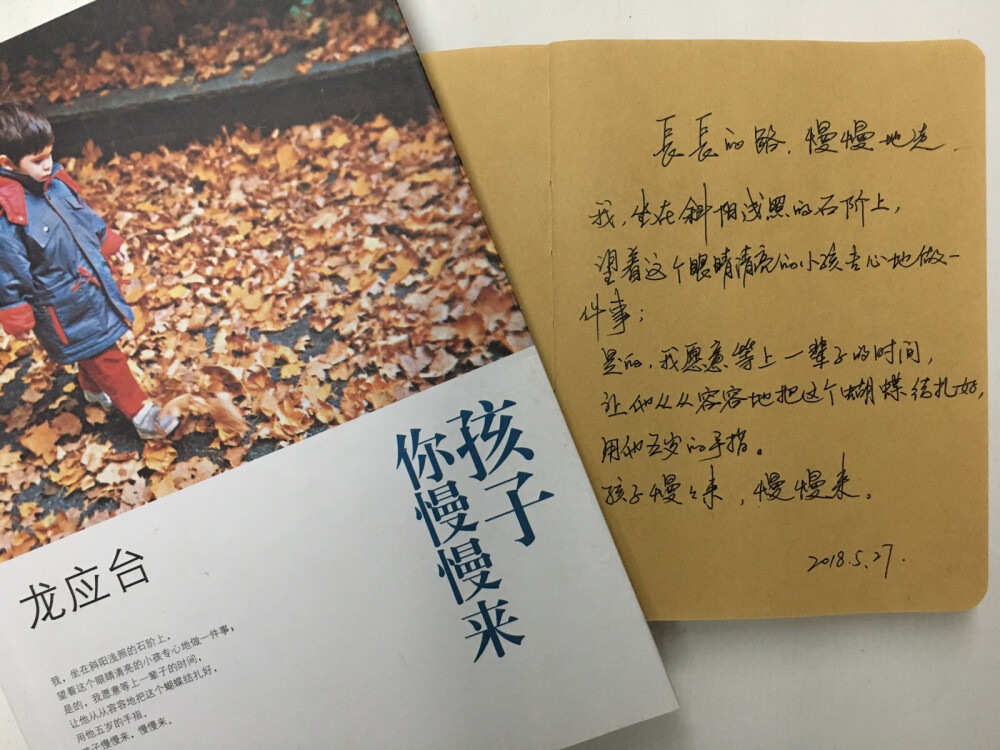 孩子
你慢慢来
龙应台
我，坐在斜阳浅照的石阶上，
望着这个眼睛清亮的小孩专心地做一件事；
是的，我愿意等上一辈子的时间，
让他从从容容地把这个蝴蝶结扎好，
用他五岁的手指。
孩子慢慢来，慢慢来。
長長的路，慢慢地走.
我，坐在斜阳浅照的石阶上，
望着这个眼睛清亮的小孩专心地做一
件事；
是的，我愿意等上一辈子的时间，
让他从从容容地把这个蝴蝶结扎好，
用他五岁的手指。
孩子慢々来，慢慢来。
2018.5.27.